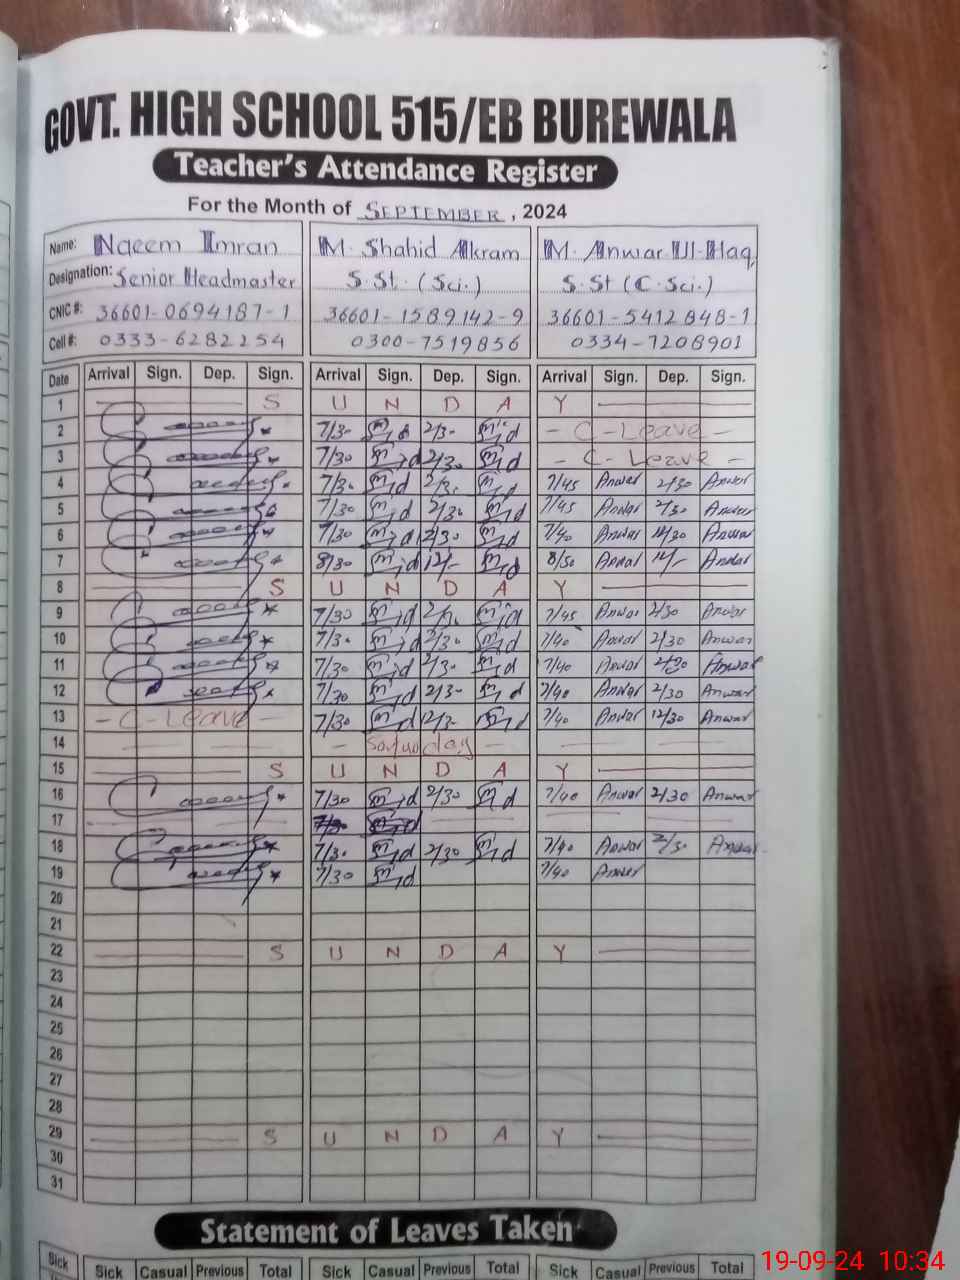 GOVT. HIGH SCHOOL 515/EB BUREWALA
Teacher's Attendance Register
For the Month of SEPTEMBER, 2024
Name: Naeem Imran M. Shahid Akram M. Anwar-Ul-Haq
Designation: Senior Headmaster S.St. (Sci.) S.St (C.Sci.)
CNIC #: 36601-0694187-1 36601-1589142-9 36601-5412848-1
Cell #: 0333-6282254 0300-7519856 0334-7208901
Date Arrival Sign. Dep. Sign. Arrival Sign. Dep. Sign. Arrival Sign. Dep. Sign.
1 S U N D A Y
2 7/30 2/30 - C-Leave -
3 7/30 2/30 - C-Leave -
4 7/30 2/30 7/45 Anwar 2/30 Anwar
5 7/30 2/30 7/45 Anwar 2/30 Anwar
6 7/30 12/30 7/40 Anwar 12/30 Anwar
7 8/30 12/- 8/30 Anwar 12/- Anwar
8 S U N D A Y
9 7/30 7/45 Anwar 2/30 Anwar
10 7/30 2/30 7/40 Anwar 2/30 Anwar
11 7/30 2/30 7/40 Anwar 2/30 Anwar
12 7/30 2/30 7/40 Anwar 2/30 Anwar
13 - C-Leave - 7/30 12/30 7/40 Anwar 12/30 Anwar
14 - Saturday -
15 S U N D A Y
16 7/30 2/30 7/40 Anwar 2/30 Anwar
17
18 7/30 2/30 7/40 Anwar 2/30 Anwar
19 7/30 7/40 Anwar
20
21
22 S U N D A Y
23
24
25
26
27
28
29 S U N D A Y
30
31
Statement of Leaves Taken
Sick Sick Casual Previous Total Sick Casual Previous Total Sick Casual Previous Total
19-09-24 10:34